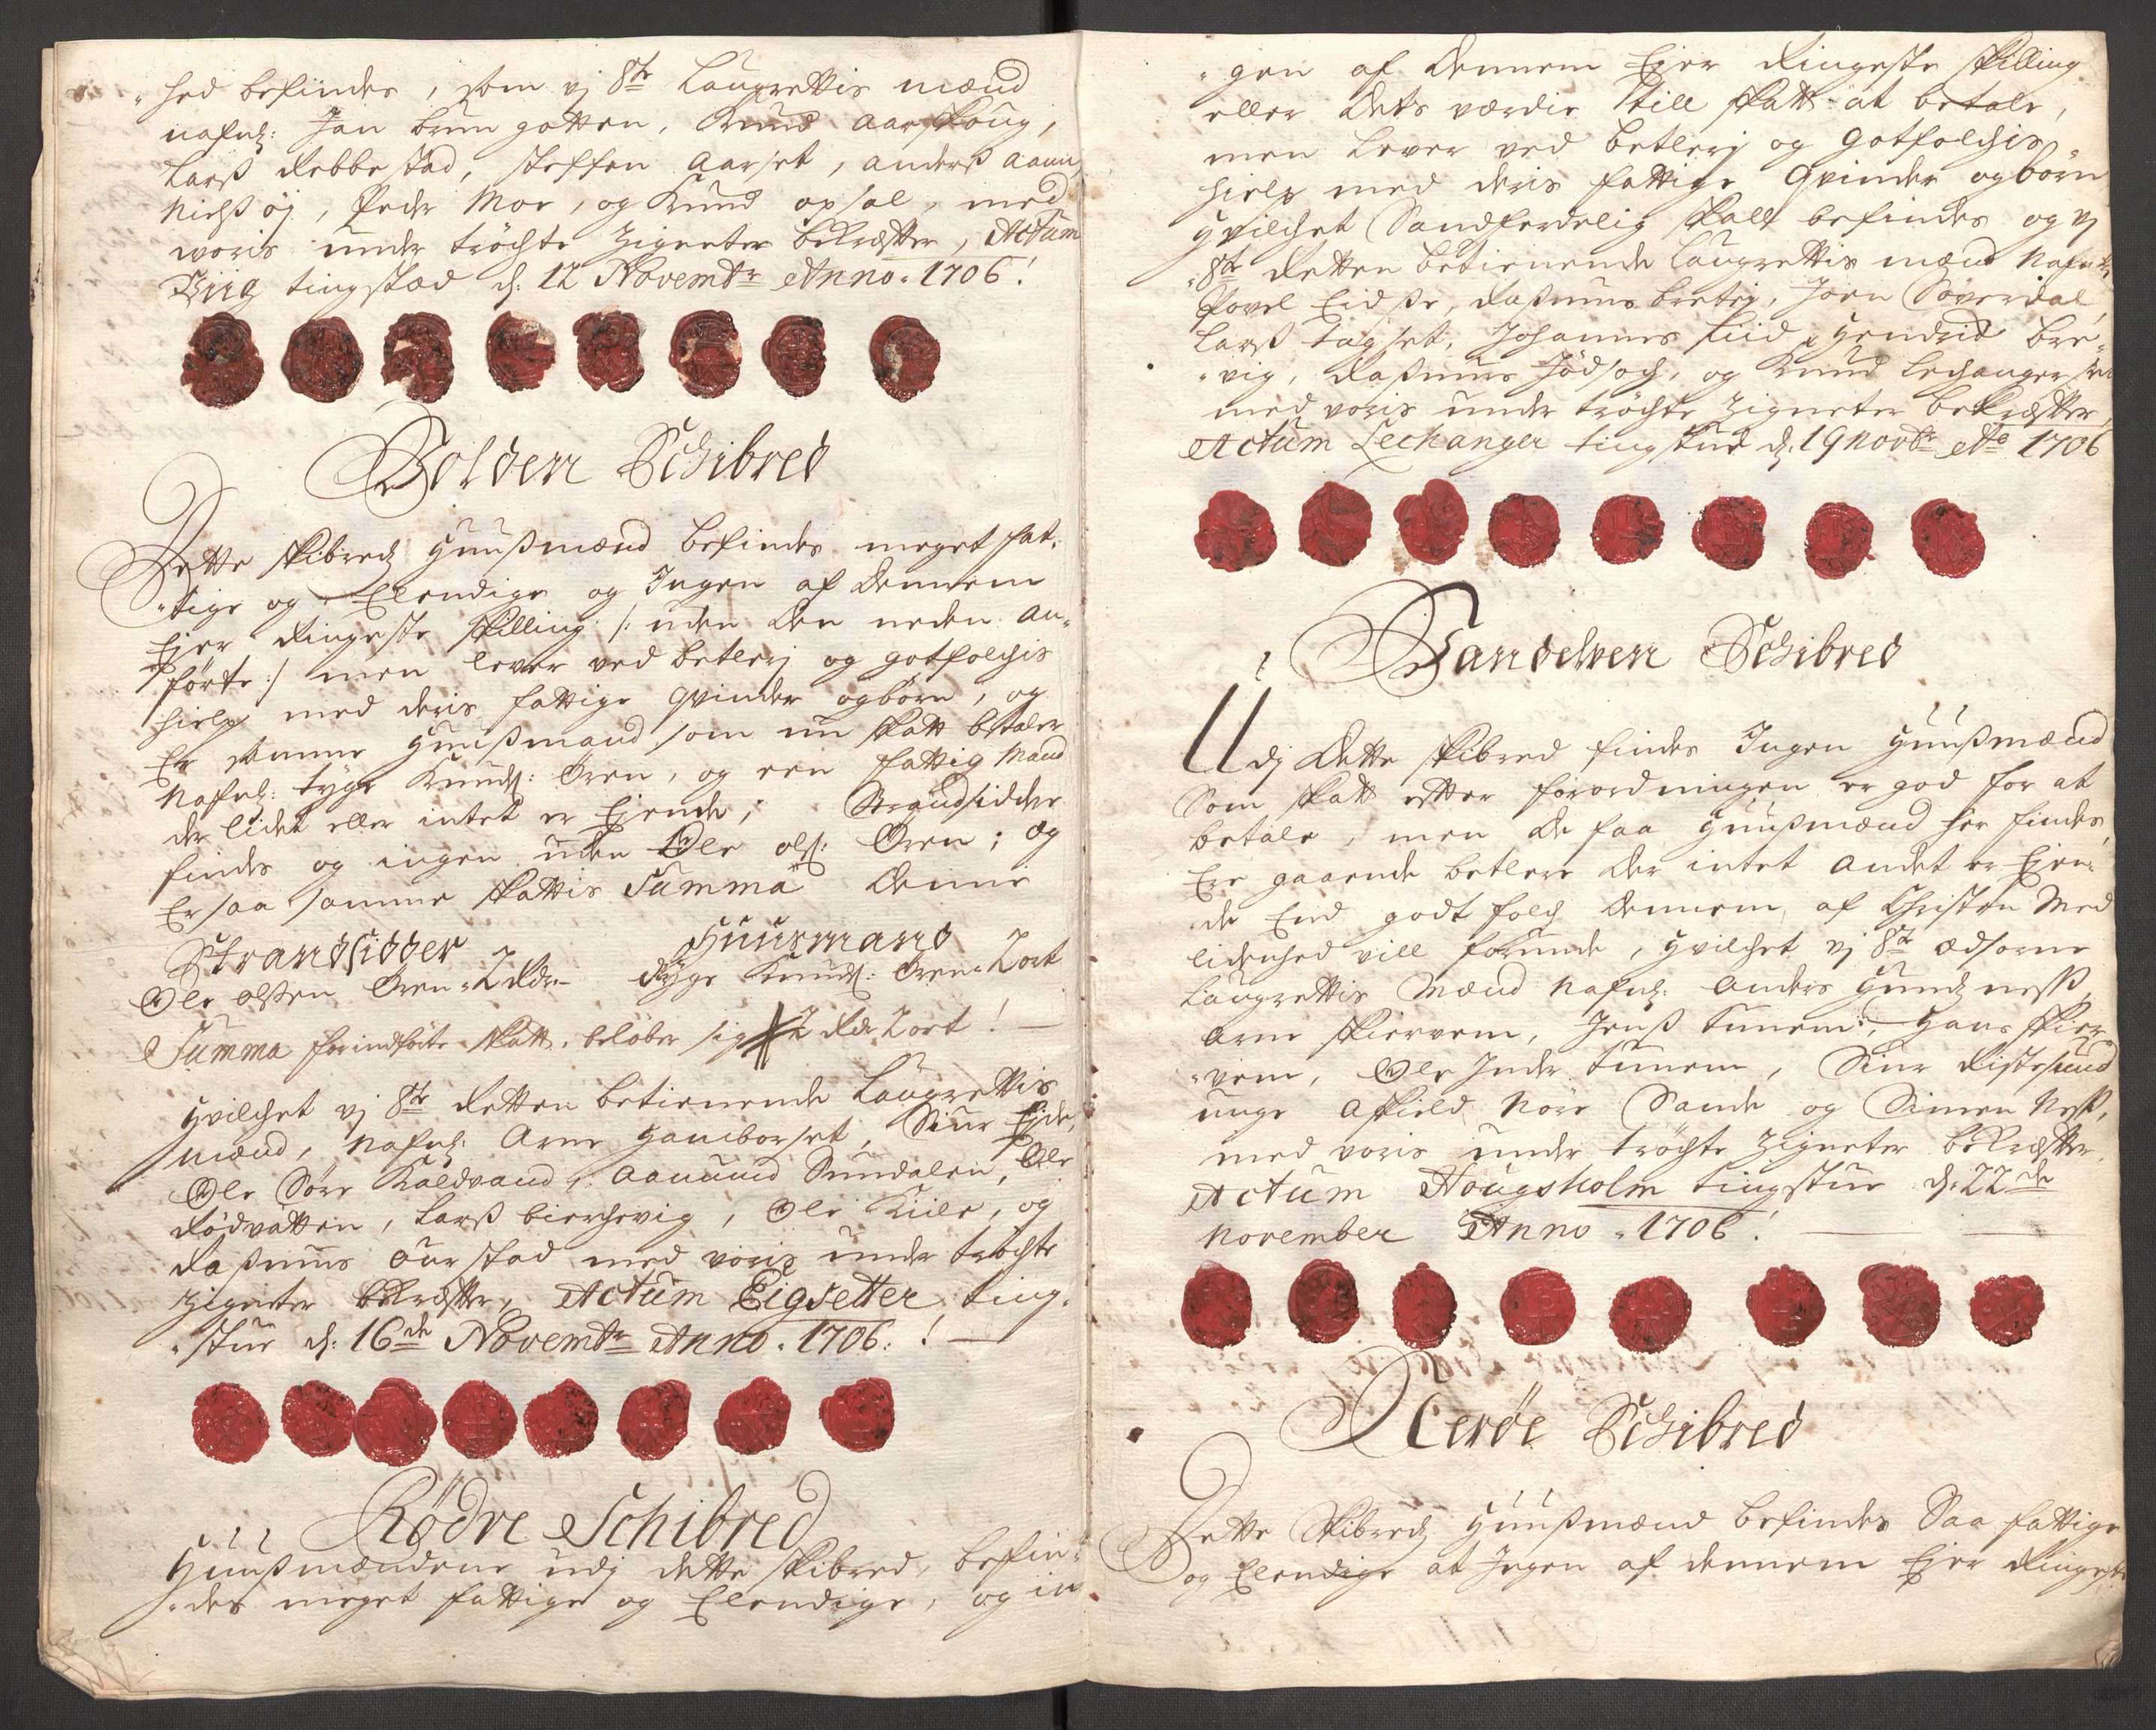 "hed befindes, som vj 8te Laugrettis mænd
nafnl: Jan brungotten, Knud Aarskoug,
Larß Rebbestad, Steffen Aarset, Anderß Aam,
Nielß øj, Peder Moe, og Knud opsal, med
voris under tröchte Zigneter bekræfter, Actum
Viig tingstæd d: 12 Novembr Anno 1706!
Volden Schibred
Dette skibredß Huußmænd befindes meget fat,
"tige og Elendige og Ingen af dennem
Ejer Ringeste skilling /: uden den neden an,
"förte :/ men lever ved betlerj og gotfolchis
hielp med deris fattige qvinder og börn, og
Er samme Huußmand som nu skatt betaler
Nafnl: tyge Knuds: Ören, og een fattig Mand
der lidet eller intet er Ejende, Strandsidder
findes og ingen uden Ole ols: Ören; og
Er saa samme skattis Summa denne
Strandsidder Huusmand
Ole olßen Ören - 2 Rdr - Tyge Knuds: Ören - 2 ort
Summa forindförte skatt, belöber sig 2 Rdr 2 ort! -
Hvilchet vj 8te Retten betienende Laugrettis
mænd, Nafnl: Arne Hamborset, Siur Ejde,
Ole Söre Kaldvand, Aamund Sundalen, Ole
Rödvatten, Larß bierchevig, Ole Kiile, og
Raßmus Ourstad med voris under tröchte
Zigneter bekræfter, Actum Eigsetter ting,
"stue d: 16de Novembr Anno 1706: ! -
Rødve Schibred
Huußmændene udj dette skibred, befin,
"des meget fattige og Elendige, og in
"gen af dennem Ejer Ringeste skilling
eller dets værdie till skatt at betale,
men lever ved betlerj og gotfolchis
hielp med deris fattige qvinder og börn
Hvilchet Sandferdelig skall befindes og vj
"8te Retten betienende Laugrettis mænd Nafnl:
Povel Eidße, Raßmus bretej, Joen Söverdal,
Larß tagset, Johannes Liid, Hendrid bre,
"vig, Raßmus Födsoch, og Knud Lechanger
med voris under tröchte Zigneter bekræfter,
Actum Lechanger tingstue d: 19 Novbr Ao 1706
Vandelven Schibred
Udj dette skibred findes Ingen Huußmænd
Som skatt efter forordningen er god for at
betale, men de faa Huußmænd her findes,
Ere gaaende betlere der intet andet er Ejen,
"de End godt folch dennem af Christen Med
lidenhed vill forunde, Hvilchet vj 8te Edsorne
Laugrettis Mænd Nafnl: Anders Hundsneß,
Arne Skiervem, Jenß tunem, Hans Skier,
"vem, Ole Inder tunem, Siur Ristesund
unge Askield Nöre Sande og Simen Neß,
med voris under tröchte Zigneter bekræfter.
Actum Hougsholm tingstue d: 22de
November Anno 1706!
Herøe Schibred
Dette Skibredß Huußmænd befindes Saa fattige
og Elendige at Ingen af dennem Ejer Ringeste